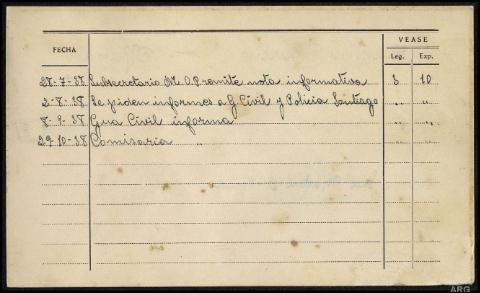 VEASE
FECHA
Leg. Exp.
28-7-38 Subsecretario M. O. P. remite nota informativa 3 10
2-8-38 Se piden informes a G. Civil y Policia Santiago " "
8-9-38 Gua Civil informa " "
29-10-38 Comisaria " " "
ARG